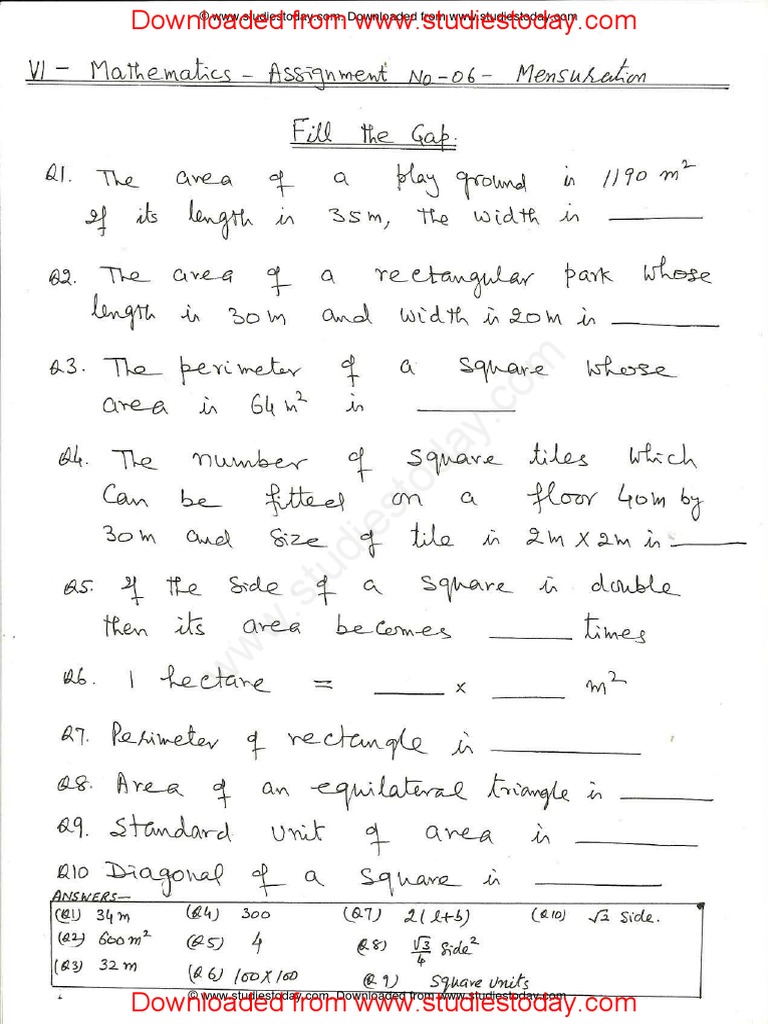 Downloaded from studiestoday.com
© www.studiestoday.com. Downloaded from www.studiestoday.com
VI - Mathematics - Assignment No-06 - Mensuration
Fill the Gap.
Q1. The area of a play ground is 1190 m²
If its length is 35m, the width is ________
Q2. The area of a rectangular park whose
length is 30m and width is 20m is ________
Q3. The perimeter of a square whose
area is 64 m² is ________
Q4. The number of square tiles which
Can be fitted on a floor 40m by
30m and size of tile is 2m X 2m is ________
Q5. If the side of a square is double
then its area becomes ________ times
Q6. 1 hectare = ______ x ______ m²
Q7. Perimeter of rectangle is ________
Q8. Area of an equilateral triangle is ________
Q9. Standard unit of area is ________
Q10 Diagonal of a square is ________
www.studiestoday.com
ANSWERS-
(Q1) 34m (Q4) 300 (Q7) 2(l+b) (Q10) √2 Side.
(Q2) 600m² (Q5) 4 (Q8) √3/4 Side²
(Q3) 32m (Q6) 100X100 (Q9) Square units
© www.studiestoday.com. Downloaded from www.studiestoday.com
Downloaded from studiestoday.com